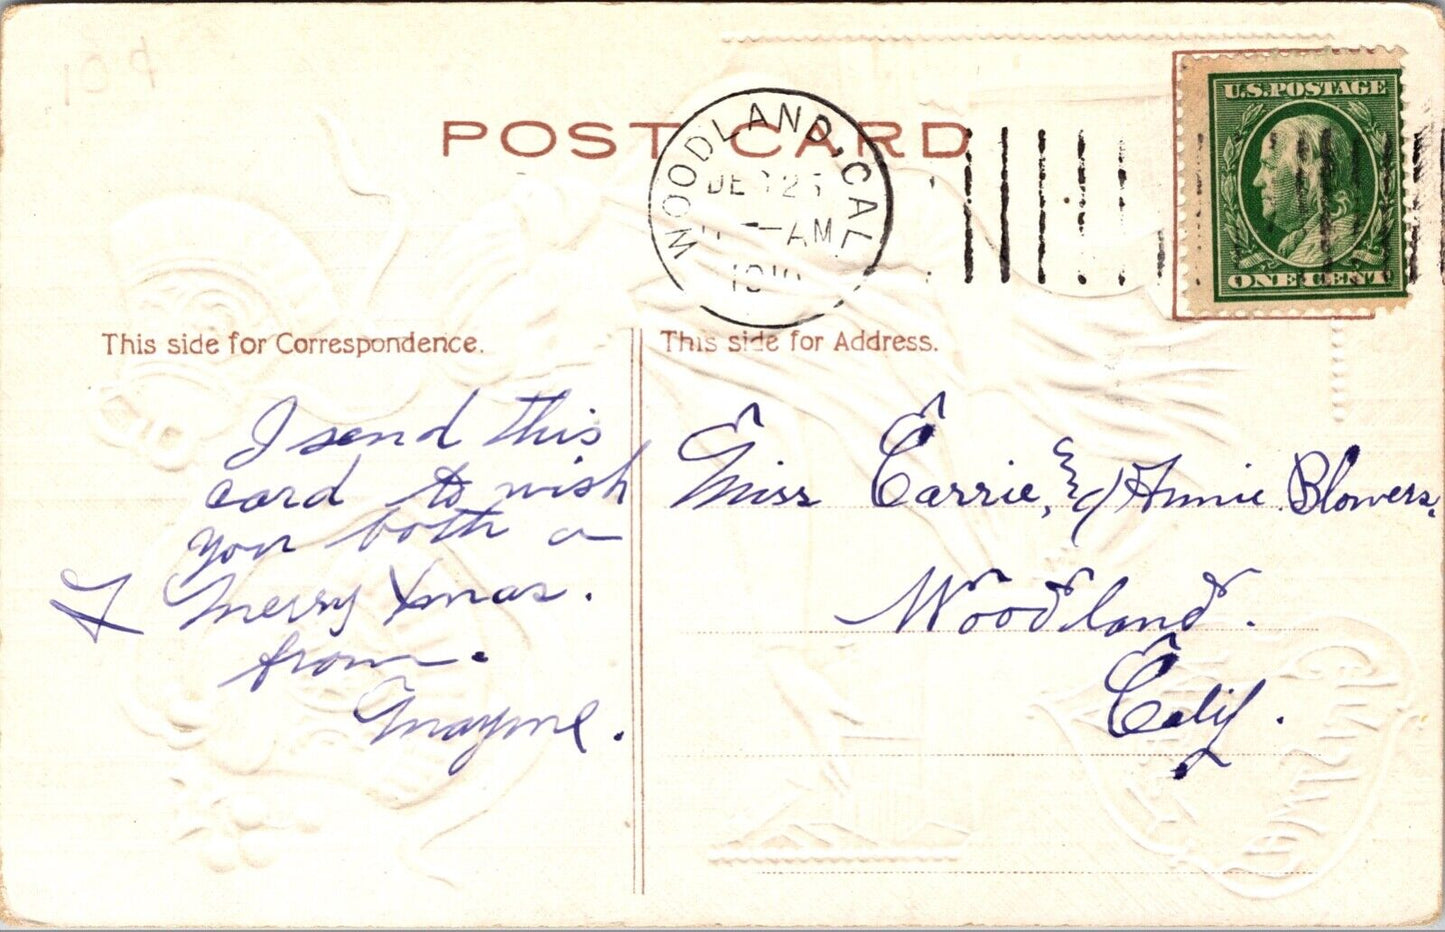 POST CARD
WOODLAND, CAL.
DEC 25
-AM
1910
U.S. POSTAGE
ONE CENT
This side for Correspondence.
This side for Address.
I send this
card to wish
you both a
Merry Xmas.
from.
Mayme.
Miss Carrie, & Annie Blowers.
Woodland.
Calif.